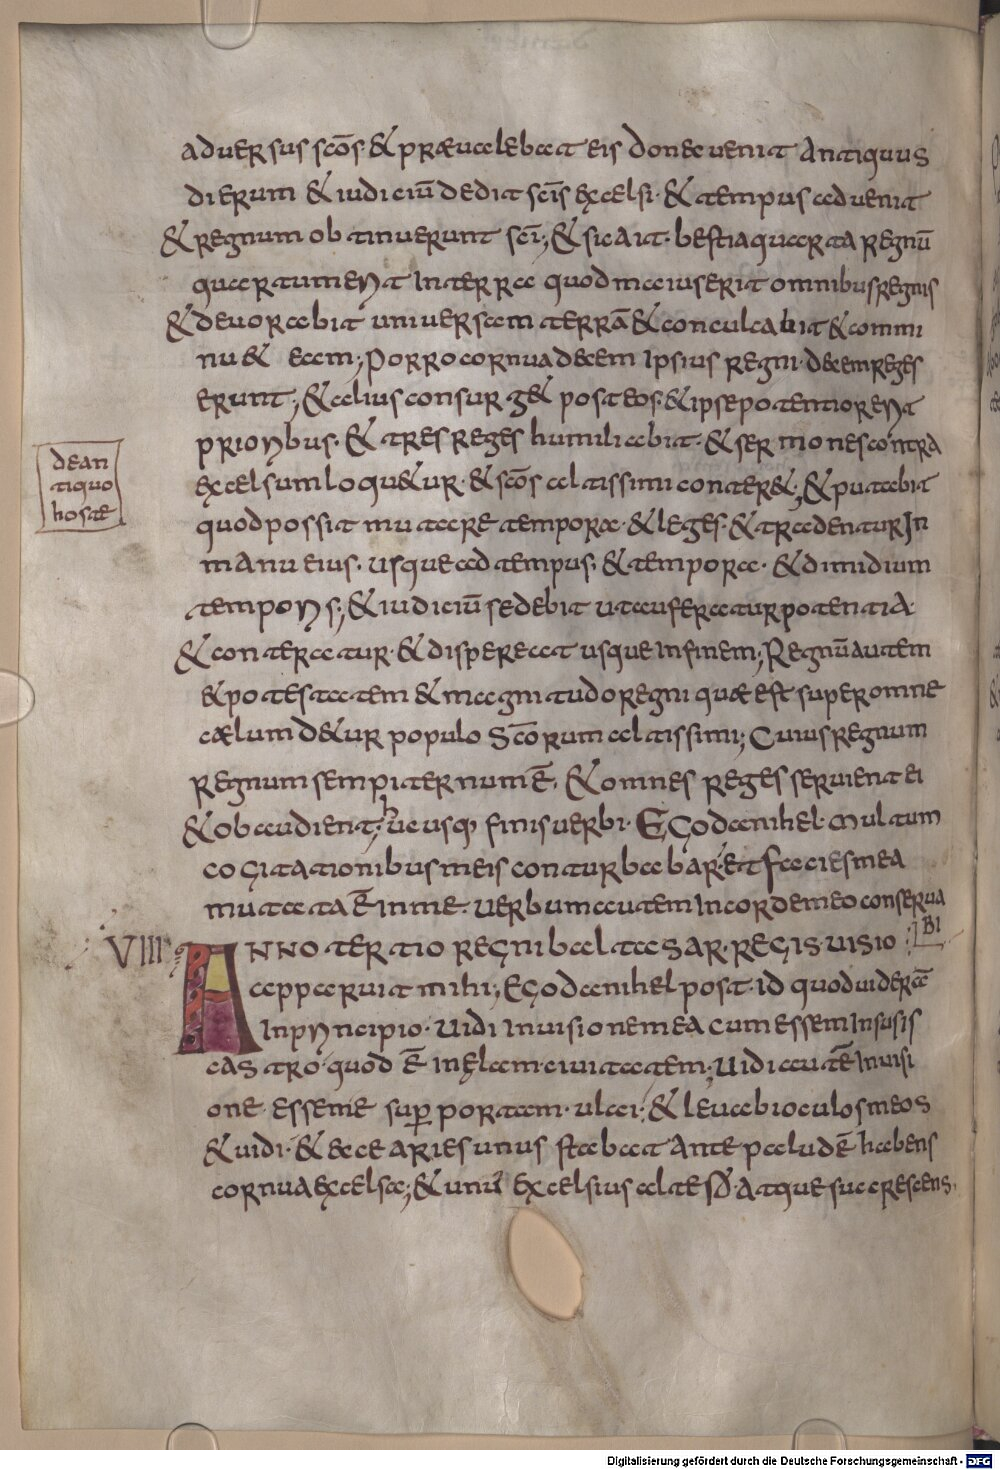 adversus scōs & prævalebat eis donec venit antiquus
dierum & iudiciū dedit scīs excelsi · & tempus advenit
& regnum obtinuerunt scī; & sic ait · bestia quarta regnū
quartum erit in terra quod maius erit omnibus regnis
& devorabit universam terrā & conculcabit & commi
nu& eam; porro cornua decem ipsius regni · decem reges
erunt; & alius consurg& post eos · & ipse potentior erit
prioribus · & tres reges humiliabit · & sermones contra
excelsum loqu&ur · & scōs altissimi conter&; & putabit
quod possit mutare tempora · & leges · & tradentur in
manu eius · usque ad tempus · & tempora · & dimidium
temporis; & iudiciū sedebit ut auferatur potentia
& conteratur · & dispereat usque in finem; Regnū autem
& potestatem & magnitudo regni quæ est super omne
cælum d&ur populo scōrum altissimi; Cuius regnum
regnum sempiternum ē · & omnes reges servient ei
& obaudient; hucusq; finis verbi · Ego danihel · multum
cogitationibus meis conturbabar · et facies mea
mutata ē in me · verbum autem in corde meo conserva
bi
VIII ANNO tertio regni baltasar · regis · visio
apparuit mihi; Ego danihel post · id quod viderā
in principio · Vidi in visione mea cum essem in susis
castro · quod ē in elam civitatem; Vidi autē in visi
one · esseme sup portam · ulai · & levabi oculos meos
& vidi · & ecce aries unus stabat ante paludē habens
cornua excelsa; & unū excelsius altero · atque succrescens ·
de an
tiquo
hoste
Digitalisierung gefördert durch die Deutsche Forschungsgemeinschaft - DFG